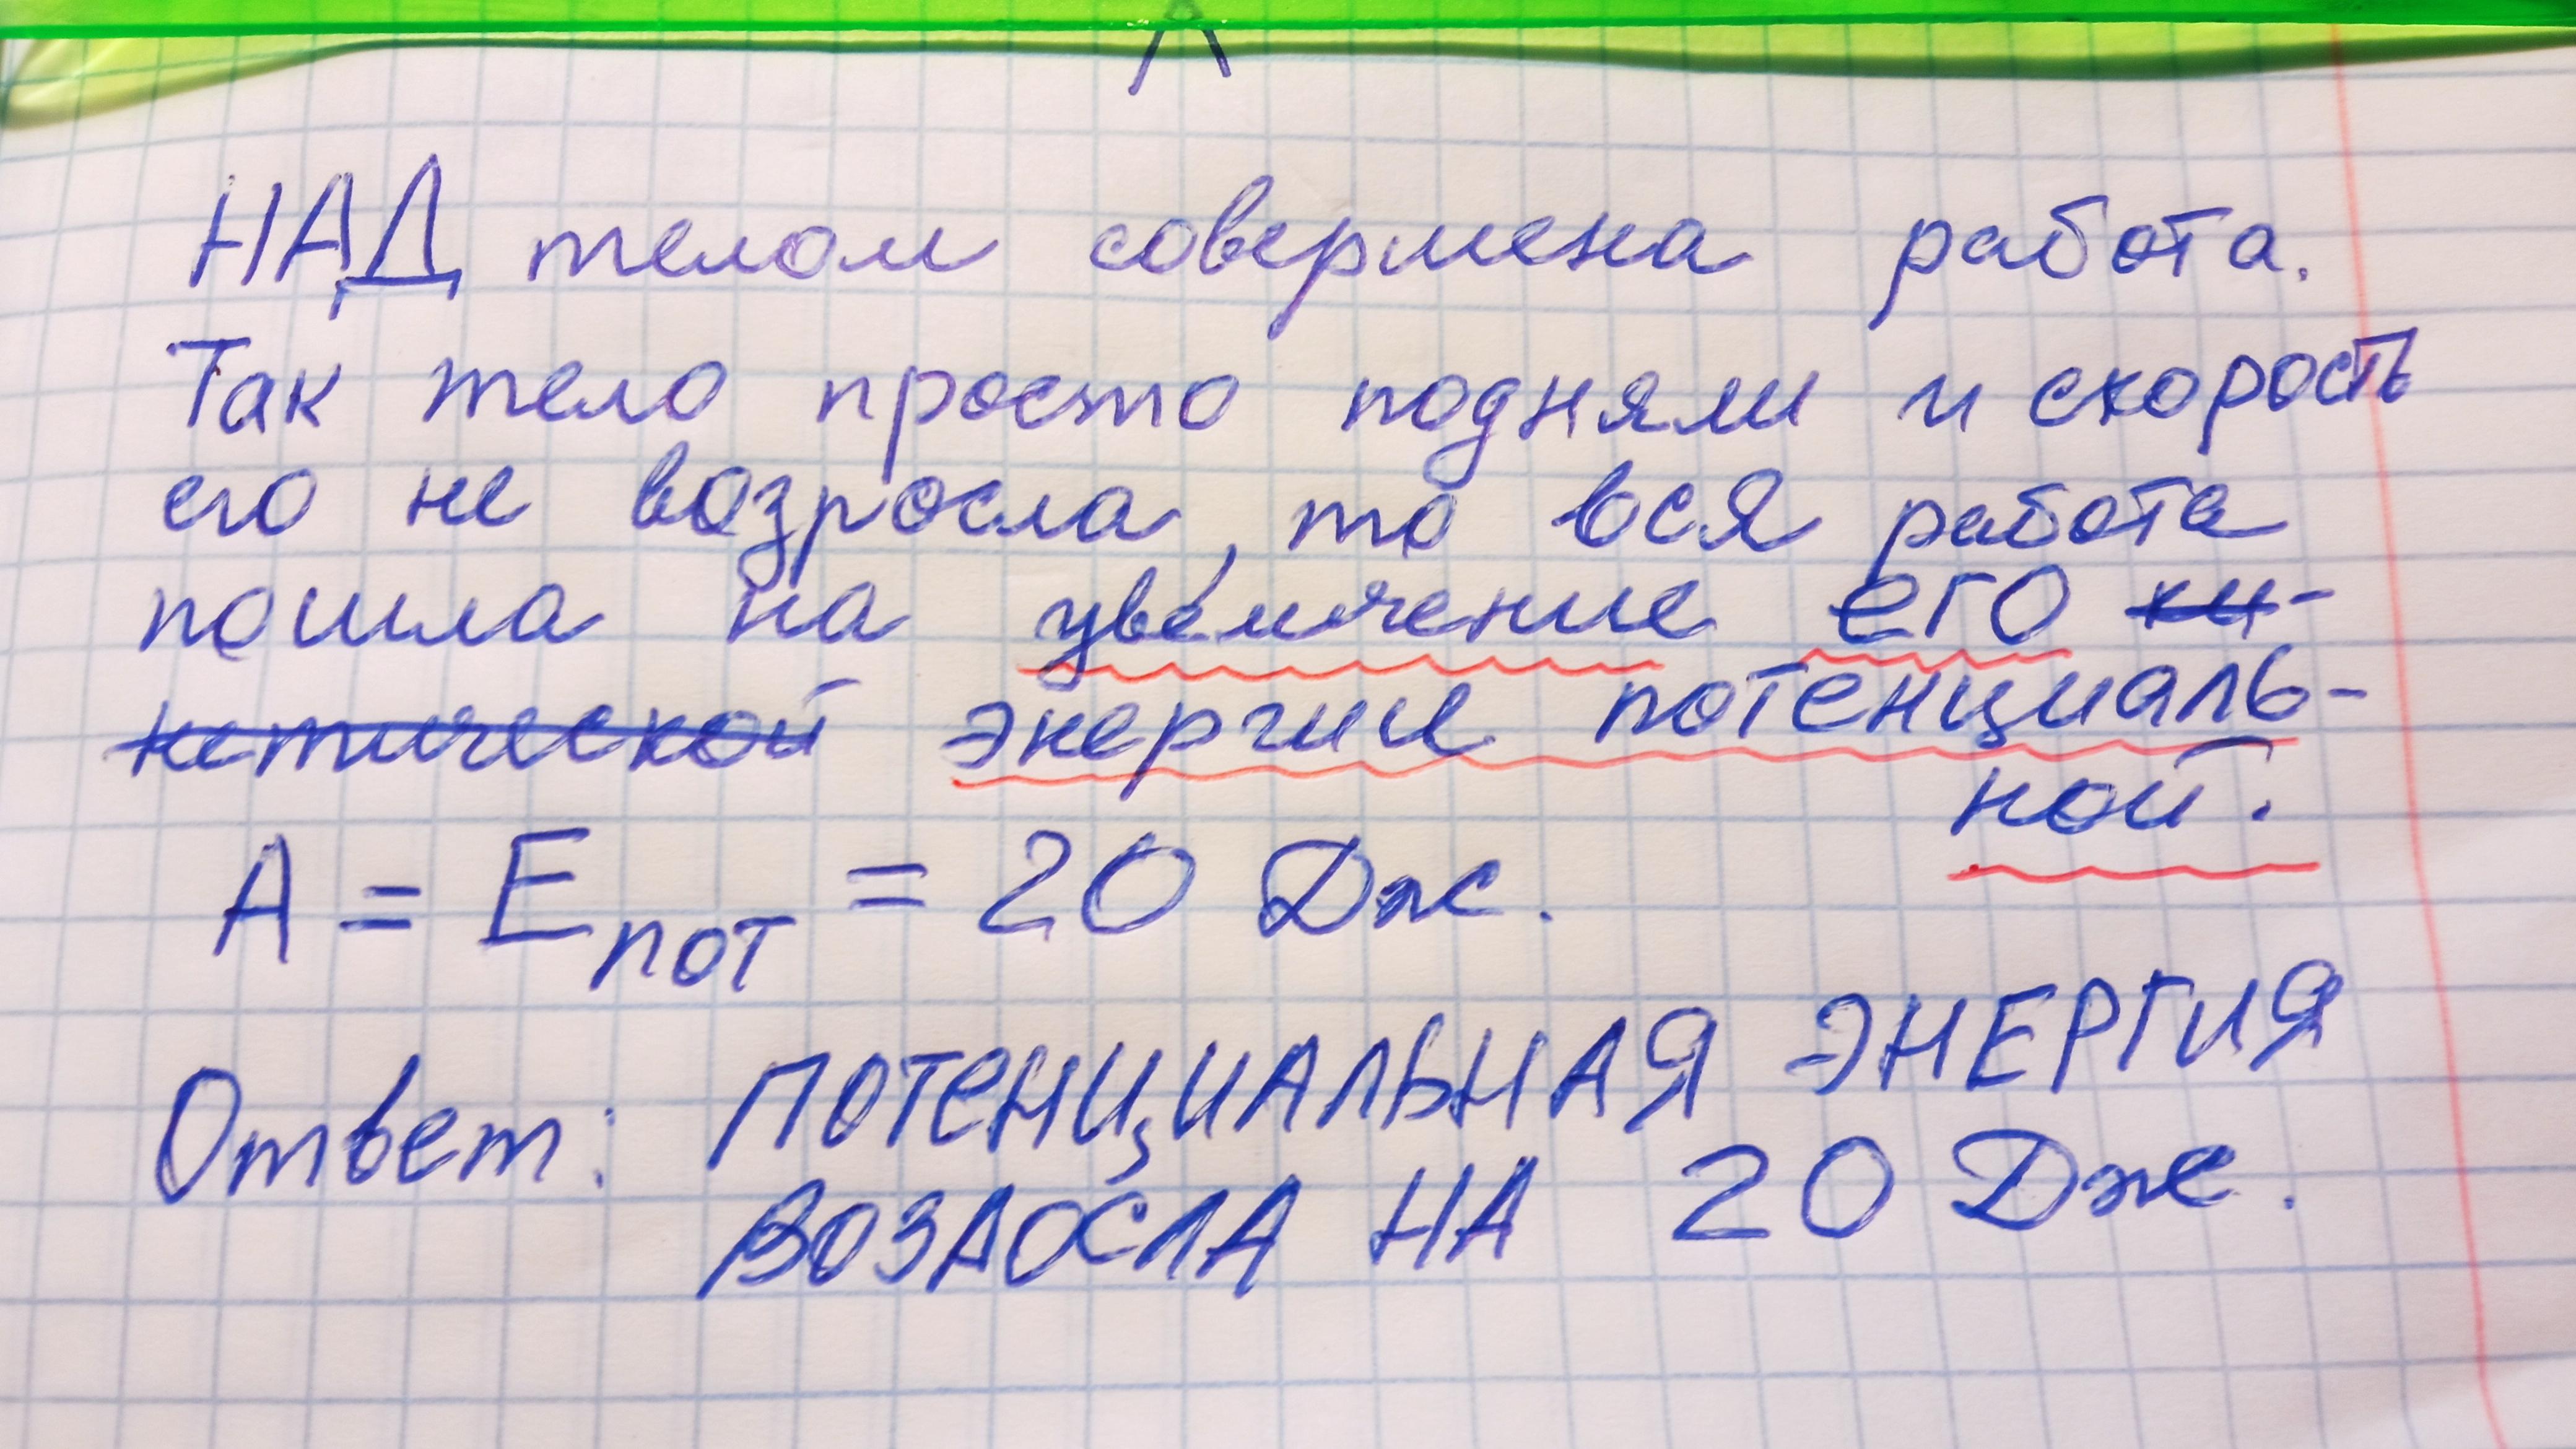 НАД телом совершена работа.
Так тело просто подняли и скорость
его не возросла, то вся работа
пошла на увеличение его ки-
нетической энергии потенциаль-
ной.
A = Eпот = 20 Дж.
Ответ: ПОТЕНЦИАЛЬНАЯ ЭНЕРГИЯ
ВОЗРОСЛА НА 20 Дж.